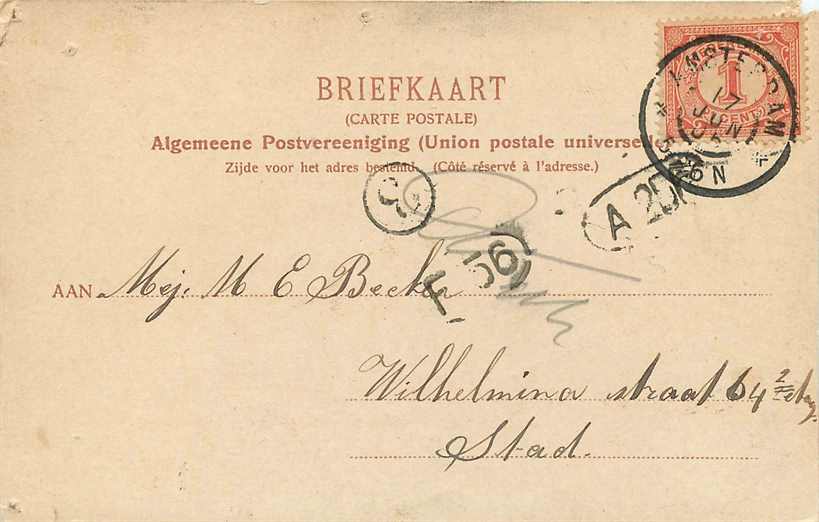 BRIEFKAART
(CARTE POSTALE)
Algemeene Postvereeniging (Union postale universelle)
Zijde voor het adres bestemd. (Côté réservé à l'adresse.)
1
CENT
AMSTERDAM
17
JUN
3
A 20
56
AAN Mej. M E Becker
Wilhelmina straat 64 2e etag.
Stad.